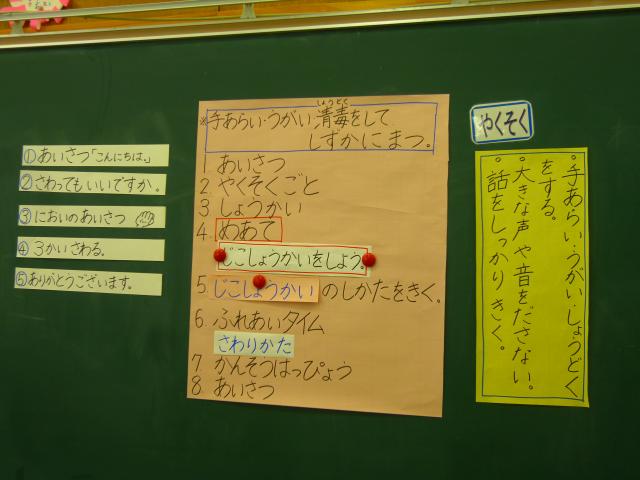 ①あいさつ「こんにちは。」
②さわってもいいですか。
③においのあいさつ
④3かいさわる。
⑤ありがとうございます。
※手あらい・うがい、消毒をして
しょうどく
しずかにまつ。
1 あいさつ
2 やくそくごと
3 しょうかい
4. めあて
じこしょうかいをしよう。
5 じこしょうかいのしかたをきく。
6 ふれあいタイム
さわりかた
7 かんそうはっぴょう
8. あいさつ
やくそく
・手あらい・うがい・しょうどく
をする。
・大きな声や音をださない。
・話をしっかりきく。